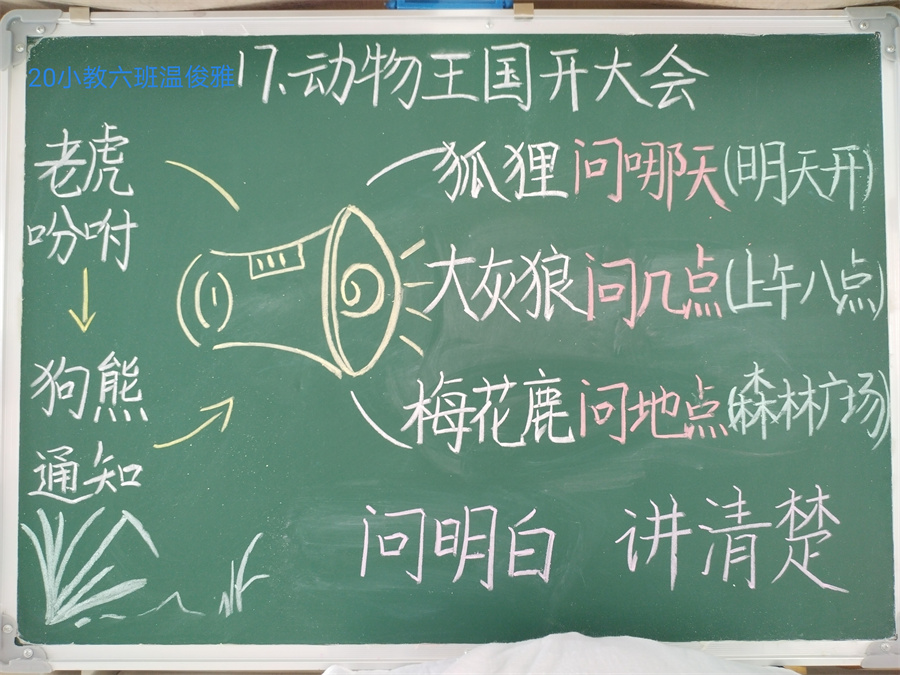 20小教六班温俊雅
17.动物王国开大会
老虎
吩咐
狗熊
通知
狐狸问哪天(明天开)
大灰狼问几点(上午八点)
梅花鹿问地点(森林广场)
问明白 讲清楚